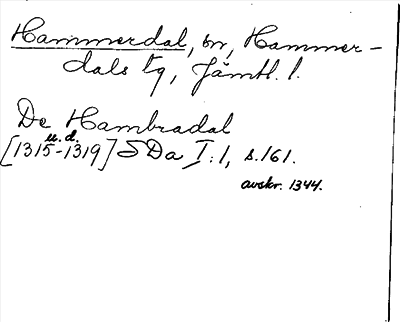 Hammerdal, sn, Hammer-
dals tg, Jämtl. l.
De Hambradal
u. d.
[1315-1319] SDa I:1, s. 161.
avskr. 1344.